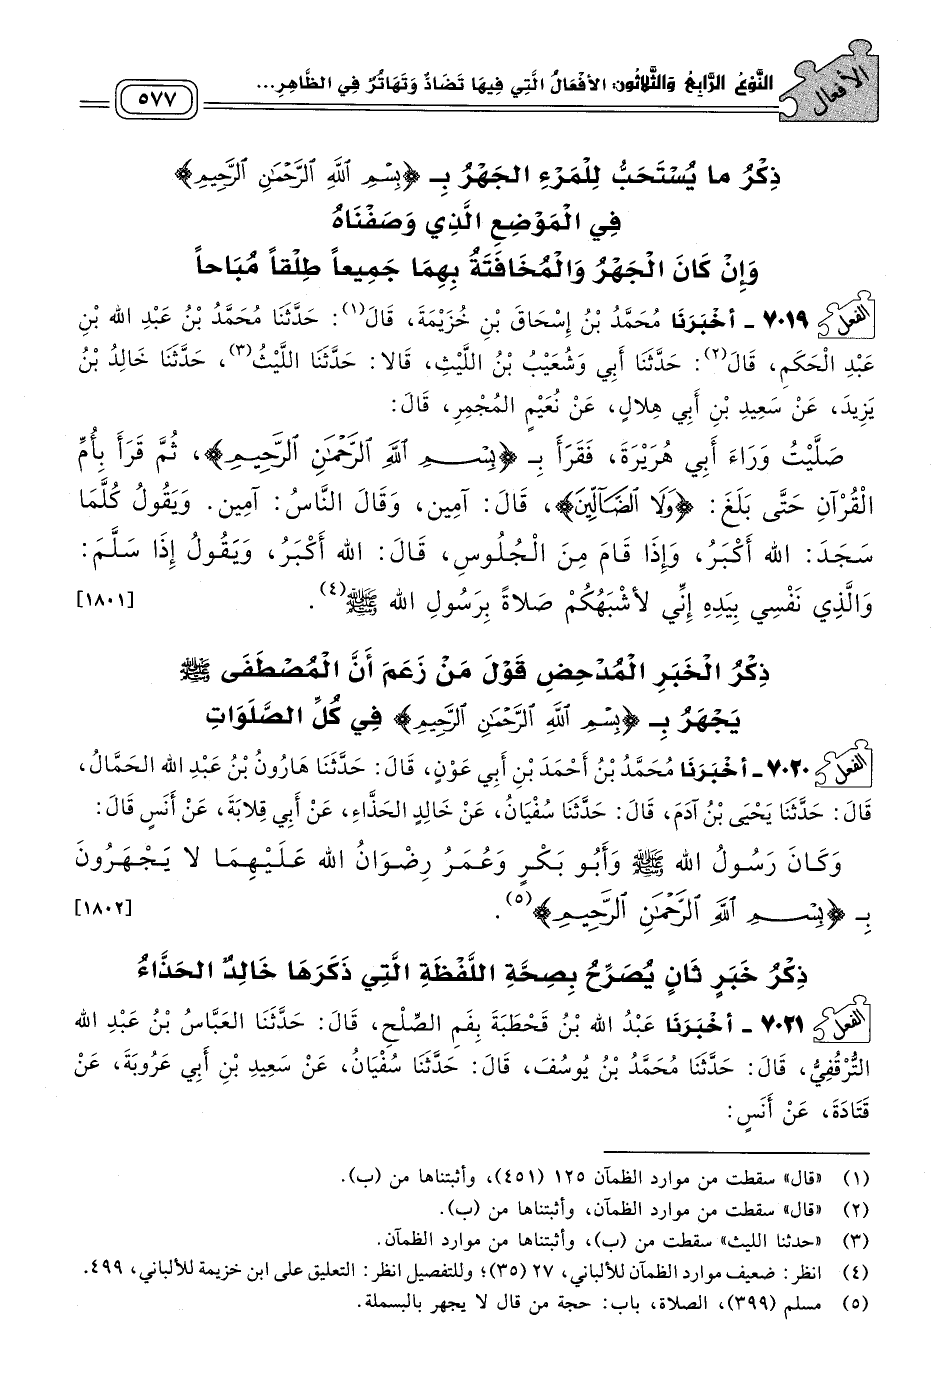 الأفعال
النَّوْعُ الرَّابِعُ وَالثَّلاثُون: الأَفْعَالُ الَّتِي فِيهَا تَضَادٌّ وَتَهَاتُرٌ فِي الظَّاهِرِ...
٥٧٧
ذِكْرُ ما يُسْتَحَبُّ لِلْمَرْءِ الجَهْرُ بِـ ﴿بِسْمِ اللَّهِ الرَّحْمَٰنِ الرَّحِيمِ﴾
فِي الْمَوْضِعِ الَّذِي وَصَفْنَاهُ
وَإِنْ كَانَ الْجَهْرُ وَالْمُخَافَتَةُ بِهِمَا جَمِيعاً طِلْقاً مُبَاحاً
الفعل ٧٠١٩ - أَخْبَرَنَا مُحَمَّدُ بْنُ إِسْحَاقَ بْنِ خُزَيْمَةَ، قَالَ(١): حَدَّثَنَا مُحَمَّدُ بْنُ عَبْدِ الله بْنِ
عَبْدِ الْحَكَمِ، قَالَ(٢): حَدَّثَنَا أَبِي وَشُعَيْبُ بْنُ اللَّيْثِ، قَالا: حَدَّثَنَا اللَّيْثُ(٣)، حَدَّثَنَا خَالِدُ بْنُ
يَزِيدَ، عَنْ سَعِيدِ بْنِ أَبِي هِلَالٍ، عَنْ نُعَيْمٍ المُجْمِرِ، قَالَ:
صَلَّيْتُ وَرَاءَ أَبِي هُرَيْرَةَ، فَقَرَأَ بِـ ﴿بِسْمِ اللَّهِ الرَّحْمَٰنِ الرَّحِيمِ﴾، ثُمَّ قَرَأَ بِأُمِّ
الْقُرْآنِ حَتَّى بَلَغَ: ﴿وَلَا الضَّآلِّينَ﴾، قَالَ: آمِين، وَقَالَ النَّاسُ: آمِين. وَيَقُولُ كُلَّمَا
سَجَدَ: الله أَكْبَرُ، وَإِذَا قَامَ مِنَ الْجُلُوسِ، قَالَ: الله أَكْبَرُ، وَيَقُولُ إِذَا سَلَّمَ:
وَالَّذِي نَفْسِي بِيَدِهِ إِنِّي لأَشْبَهُكُمْ صَلاةً بِرَسُولِ الله ﷺ(٤). [١٨٠١]
ذِكْرُ الْخَبَرِ الْمُدْحِضِ قَوْلَ مَنْ زَعَمَ أَنَّ الْمُصْطَفَى ﷺ
يَجْهَرُ بِـ ﴿بِسْمِ اللَّهِ الرَّحْمَٰنِ الرَّحِيمِ﴾ فِي كُلِّ الصَّلَوَاتِ
الفعل ٧٠٢٠ - أَخْبَرَنَا مُحَمَّدُ بْنُ أَحْمَدَ بْنِ أَبِي عَوْنٍ، قَالَ: حَدَّثَنَا هَارُونُ بْنُ عَبْدِ الله الحَمَّالُ،
قَالَ: حَدَّثَنَا يَحْيَى بْنُ آدَمَ، قَالَ: حَدَّثَنَا سُفْيَانُ، عَنْ خَالِدٍ الحَذَّاءِ، عَنْ أَبِي قِلابَةَ، عَنْ أَنَسٍ قَالَ:
وَكَانَ رَسُولُ الله ﷺ وَأَبُو بَكْرٍ وَعُمَرُ رِضْوَانُ الله عَلَيْهِمَا لا يَجْهَرُونَ
بِـ ﴿بِسْمِ اللَّهِ الرَّحْمَٰنِ الرَّحِيمِ﴾(٥). [١٨٠٢]
ذِكْرُ خَبَرٍ ثَانٍ يُصَرِّحُ بِصِحَّةِ اللَّفْظَةِ الَّتِي ذَكَرَهَا خَالِدٌ الحَذَّاءُ
الفعل ٧٠٢١ - أَخْبَرَنَا عَبْدُ الله بْنُ قَحْطَبَةَ بِفَمِ الصِّلْحِ، قَالَ: حَدَّثَنَا العَبَّاسُ بْنُ عَبْدِ الله
التُّرْقُفِيُّ، قَالَ: حَدَّثَنَا مُحَمَّدُ بْنُ يُوسُفَ، قَالَ: حَدَّثَنَا سُفْيَانُ، عَنْ سَعِيدِ بْنِ أَبِي عَرُوبَةَ، عَنْ
قَتَادَةَ، عَنْ أَنَسٍ:
(١) «قال» سقطت من موارد الظمآن ١٢٥ (٤٥١)، وأثبتناها من (ب).
(٢) «قال» سقطت من موارد الظمآن، وأثبتناها من (ب).
(٣) «حدثنا الليث» سقطت من (ب)، وأثبتناها من موارد الظمآن.
(٤) انظر: ضعيف موارد الظمآن للألباني، ٢٧ (٣٥)؛ وللتفصيل انظر: التعليق على ابن خزيمة للألباني، ٤٩٩.
(٥) مسلم (٣٩٩)، الصلاة، باب: حجة من قال لا يجهر بالبسملة.